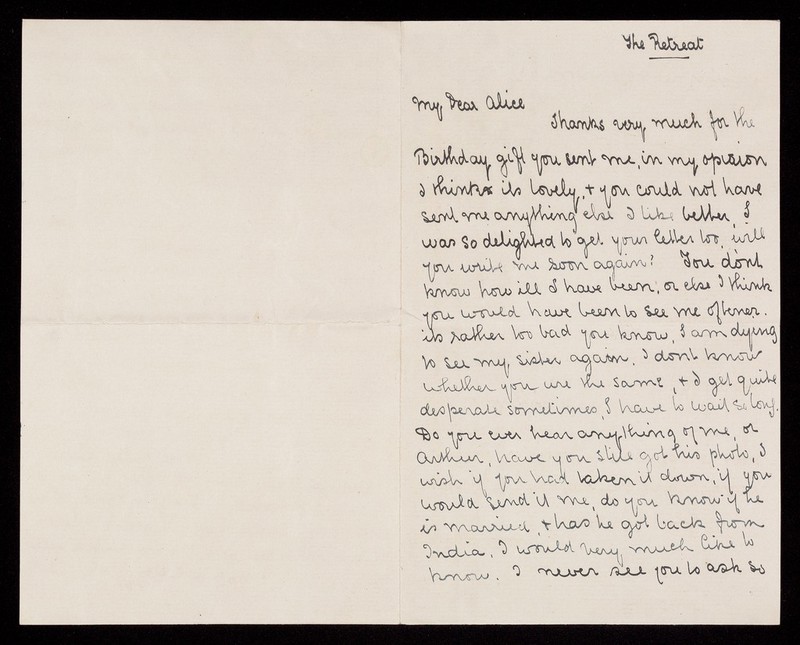 The Retreat
My Dear Alice
Thanks very much for the
Birthday gift you sent me, in my opinion
I thinks its lovely, + you could not have
sent me anything else I like better, I
was so delighted to get your letter too, will
you write me soon again? You dont
know how ill I have been, or else I think
you would have been to see me oftener.
its rather too bad you know, I am dying
to see my sister again. I dont know
whether you are the same, + I get quite
desperate sometimes, I have to wait so long.
Do you ever hear anything of me, or
Arthur, have you still got his photo, I
wish if you had taken it down, if you
would send it me, do you know if he
is married, + has he got back from
India, I would very much like to
know. I never see you to ask so